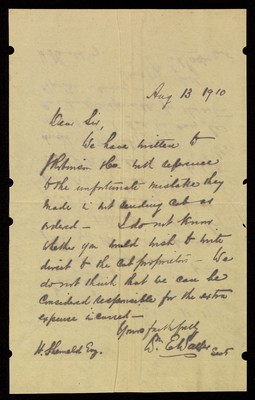 Aug 13 1910
Dear Sir,
We have written to
J Robinson & Co. with reference
to the unfortunate mistake they
made in not sending cab as
ordered – I do not know
whether you would wish to write
direct to the cab proprietor – We
do not think that we can be
considered responsible for the extra
expense incurred –
Yours faithfully
W. E.
Sect
W. Sherrald Esq.